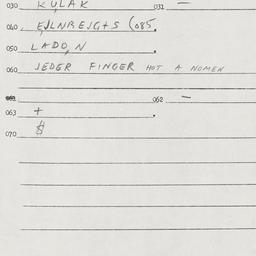 030 KULAK 031 —
040. EJLNREJGTS (085.
050 LADO,N
060 JEDER FINGER HOT A NOMEN
061 062 —
063 +
070 $